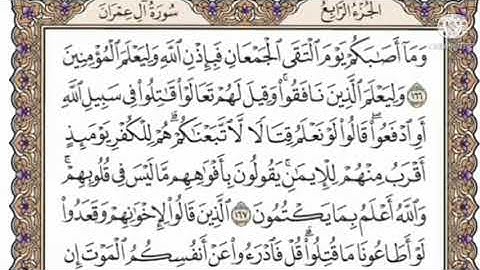 الجزء الرابع
سورة آل عمران
وَمَآ أَصَٰبَكُمۡ يَوۡمَ ٱلۡتَقَى ٱلۡجَمۡعَانِ فَبِإِذۡنِ ٱللَّهِ وَلِيَعۡلَمَ ٱلۡمُؤۡمِنِينَ
١٦٦ وَلِيَعۡلَمَ ٱلَّذِينَ نَافَقُواْۚ وَقِيلَ لَهُمۡ تَعَالَوۡاْ قَٰتِلُواْ فِي سَبِيلِ ٱللَّهِ
أَوِ ٱدۡفَعُواْۖ قَالُواْ لَوۡ نَعۡلَمُ قِتَالٗا لَّٱتَّبَعۡنَٰكُمۡۗ هُمۡ لِلۡكُفۡرِ يَوۡمَئِذٍ
أَقۡرَبُ مِنۡهُمۡ لِلۡإِيمَٰنِۚ يَقُولُونَ بِأَفۡوَٰهِهِم مَّا لَيۡسَ فِي قُلُوبِهِمۡۚ
وَٱللَّهُ أَعۡلَمُ بِمَا يَكۡتُمُونَ ١٦٧ ٱلَّذِينَ قَالُواْ لِإِخۡوَٰنِهِمۡ وَقَعَدُواْ
لَوۡ أَطَاعُونَا مَا قُتِلُواْۗ قُلۡ فَٱدۡرَءُواْ عَنۡ أَنفُسِكُمُ ٱلۡمَوۡتَ إِن